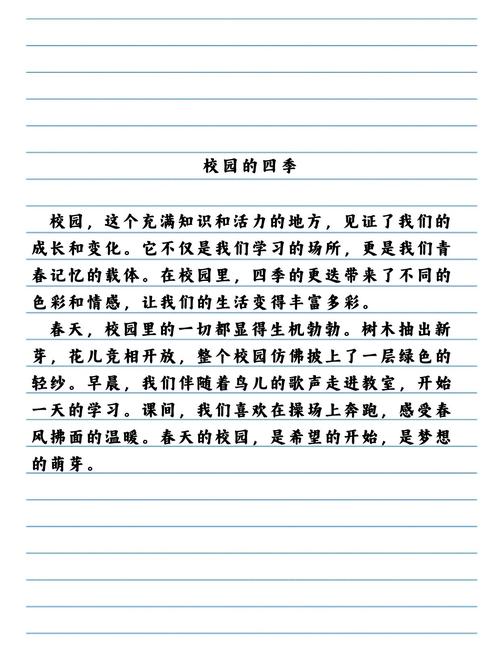 校园的四季
校园，这个充满知识和活力的地方，见证了我们的
成长和变化。它不仅是我们学习的场所，更是我们青
春记忆的载体。在校园里，四季的更迭带来了不同的
色彩和情感，让我们的生活变得丰富多彩。
春天，校园里的一切都显得生机勃勃。树木抽出新
芽，花儿竞相开放，整个校园仿佛披上了一层绿色的
轻纱。早晨，我们伴随着鸟儿的歌声走进教室，开始
一天的学习。课间，我们喜欢在操场上奔跑，感受春
风拂面的温暖。春天的校园，是希望的开始，是梦想
的萌芽。